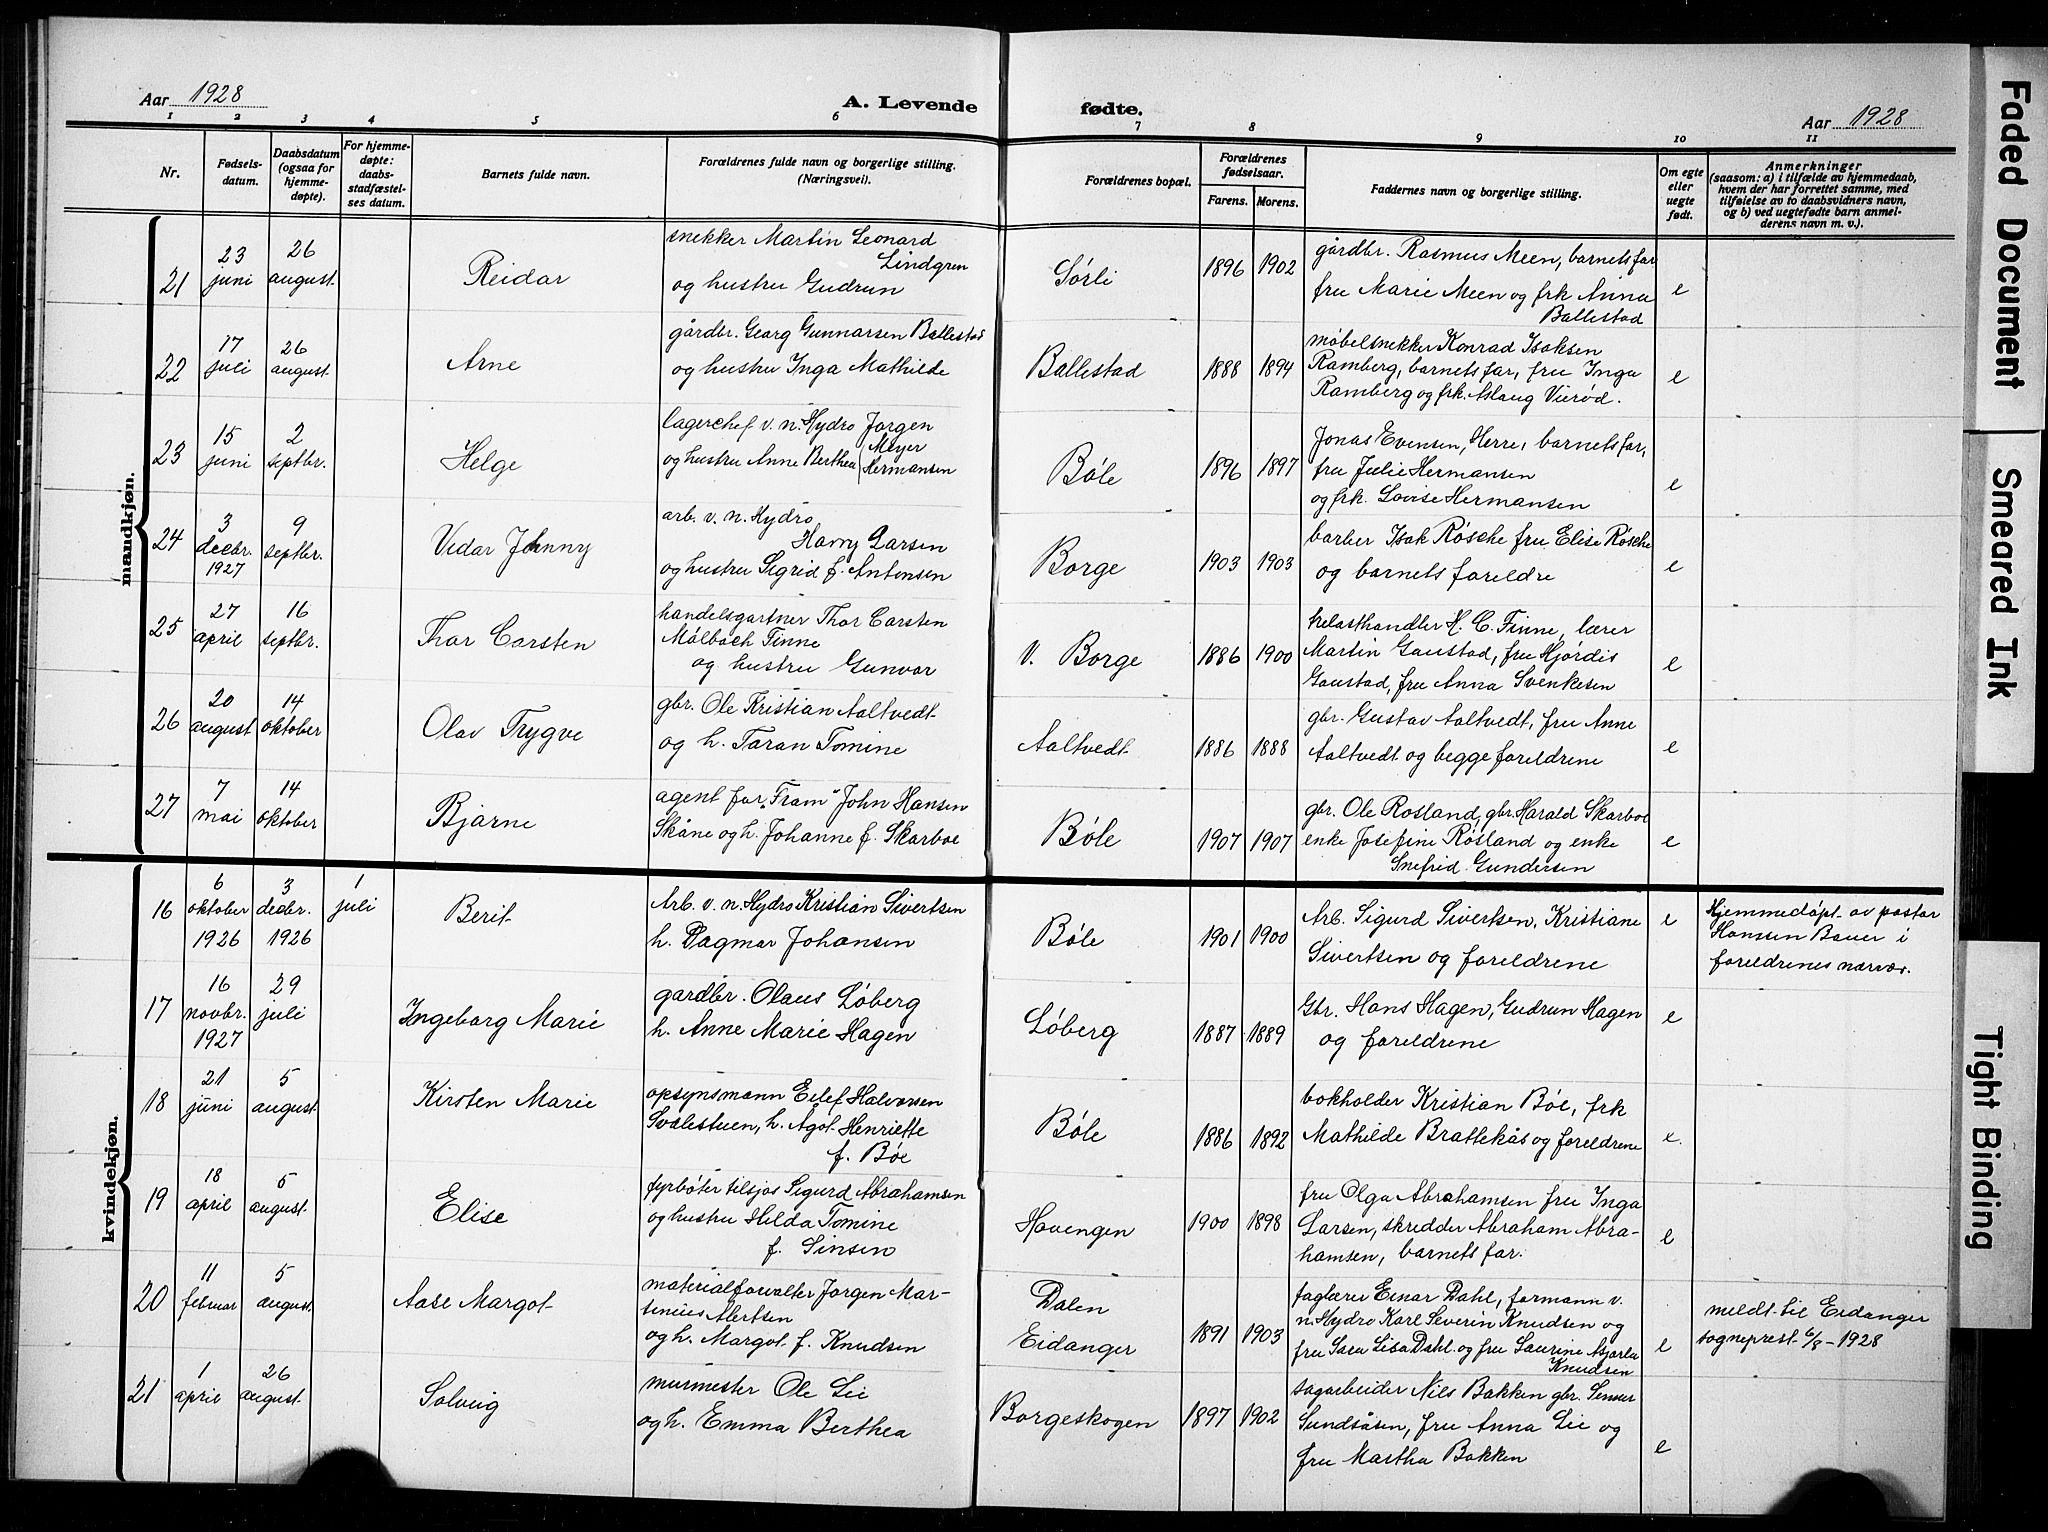 Aar 1928
A. Levende fødte.
Aar 1928
1 2 3 4 5 6 7 8 9 10 11
Nr.
Fødsels-
datum.
Daabsdatum
(ogsaa for
hjemme-
døpte).
For hjemme-
døpte:
daabs-
stadfæstel-
ses datum.
Barnets fulde navn.
Forældrenes fulde navn og borgerlige stilling.
(Næringsvei).
Forældrenes bopæl.
Forældrenes
fødselsaar.
Farens. Morens.
Faddernes navn og borgerlige stilling.
Om egte
eller
uegte
født.
Anmerkninger
(saasom: a) i tilfælde av hjemmedaab,
hvem der har forrettet samme, med
tilføielse av to daabsvidners navn,
og b) ved uegtefødte barn anmel-
derens navn m. v.).
mandkjøn.
21
23
juni
26
august
Reidar
snekker Martin Leonard
Lindgren
og hustru Gudrun
Sørli
1896 1902
gårdbr. Rasmus Meen, barnets far
fru Marie Meen og frk Anna
Ballestad
e
22
17
juli
26
august
Arne
gårdbr. Georg Gunnarsen Ballestad
og hustru Inga Mathilde
Ballestad
1888 1894
møbelsnekker Konrad Isaksen
Ramberg, barnets far, fru Inga
Ramberg og frk. Aslaug Vierød.
e
23
15
juni
2
septbr.
Helge
lagerchef v. n. Hydro Jørgen
Meyer
og hustru Anne Berthea Hermansen
Bøle
1896 1897
Jonas Evensen, Herre, barnets far,
fru Julie Hermansen
og frk. Lovise Hermansen
e
24
3
decbr.
1927
9
septbr.
Vidar Johnny
arb. v. n. Hydro
Harry Larsen
og hustru Sigrid f. Antonsen
Borge
1903 1903
barber Isak Røsche fru Elise Røsche
og barnets foreldre
e
25
27
april
16
septbr.
Thor Carsten
handelsgartner Thor Carsten
Mølbach Finne
og hustru Gunvor
v. Borge
1886 1900
trelasthandler H. C. Finne, lærer
Martin Gaustad, fru Hjørdis
Gaustad, fru Anna Svenkesen
e
26
20
august
14
oktober
Olav Trygve
gbr. Ole Kristian Aaltvedt
og h. Taran Tomine
Aaltvedt
1886 1888
gbr. Gustav Aaltvedt, fru Anne
Aaltvedt og begge foreldrene
e
27
7
mai
14
oktober
Bjarne
agent for "Fram" John Hansen
Skåne og h. Johanne f. Skarboe
Bøle
1907 1907
gbr. Ole Rosland, gbr. Harald Skarboe
enke Josefine Røsland og enke
Snefrid Gundersen
e
kvindekjøn.
16
6
oktober
1926
3
decbr.
1926
1
juli
Berit
Arb. v. n. Hydro Kristian Sivertsen
h. Dagmar Johansen
Bøle
1901 1900
Arb. Sigurd Sivertsen, Kristiane
Sivertsen og foreldrene
e
Hjemmedøpt av pastor
Hansen Bauer i
foreldrenes nærvær.
17
16
novbr.
1927
29
juli
Ingeborg Marie
gardbr. Olaus Løberg
h. Anne Marie Hagen
Løberg
1887 1889
Gbr. Hans Hagen, Gudrun Hagen
og foreldrene
e
18
21
juni
5
august
Kirsten Marie
opsynsmann Eilef Halvorsen
Svalestuen, h. Agot Henriette
f. Bøe
Bøle
1886 1892
bokholder Kristian Bøe, frk
Mathilde Brattekås og foreldrene
e.
19
18
april
5
august
Elise
fyrbøter tilsjøs Sigurd Abrahamsen
og hustru Hilda Tomine
f. Sinsen
Havengen
1900 1898
fru Olga Abrahamsen fru Inga
Larsen, skredder Abraham Abra-
hamsen, barnets far.
e
20
11
februar
5
august
Aase Margot
materialforvalter Jørgen Mar-
tinius Alertsen
og h. Margot f. Knudsen
Dalen
Eidanger
1891 1903
faglærer Einar Dahl, formann v.
n. Hydro Karl Severin Knudsen og
fru Sara Lisa Dahl og fru Laurine
Knudsen
e
meldt til Eidanger
sogneprest 6/8-1928
21
1
april
26
august
Solveig
murmester Ole Lie
og h. Emma Berthea
Borgeskogen
1897 1902
sagarbeider Nils Bakken gbr.
Sundsåsen, fru Anna Lie og
fru Martha Bakken
e
Faded Document
Smeared Ink
Tight Binding